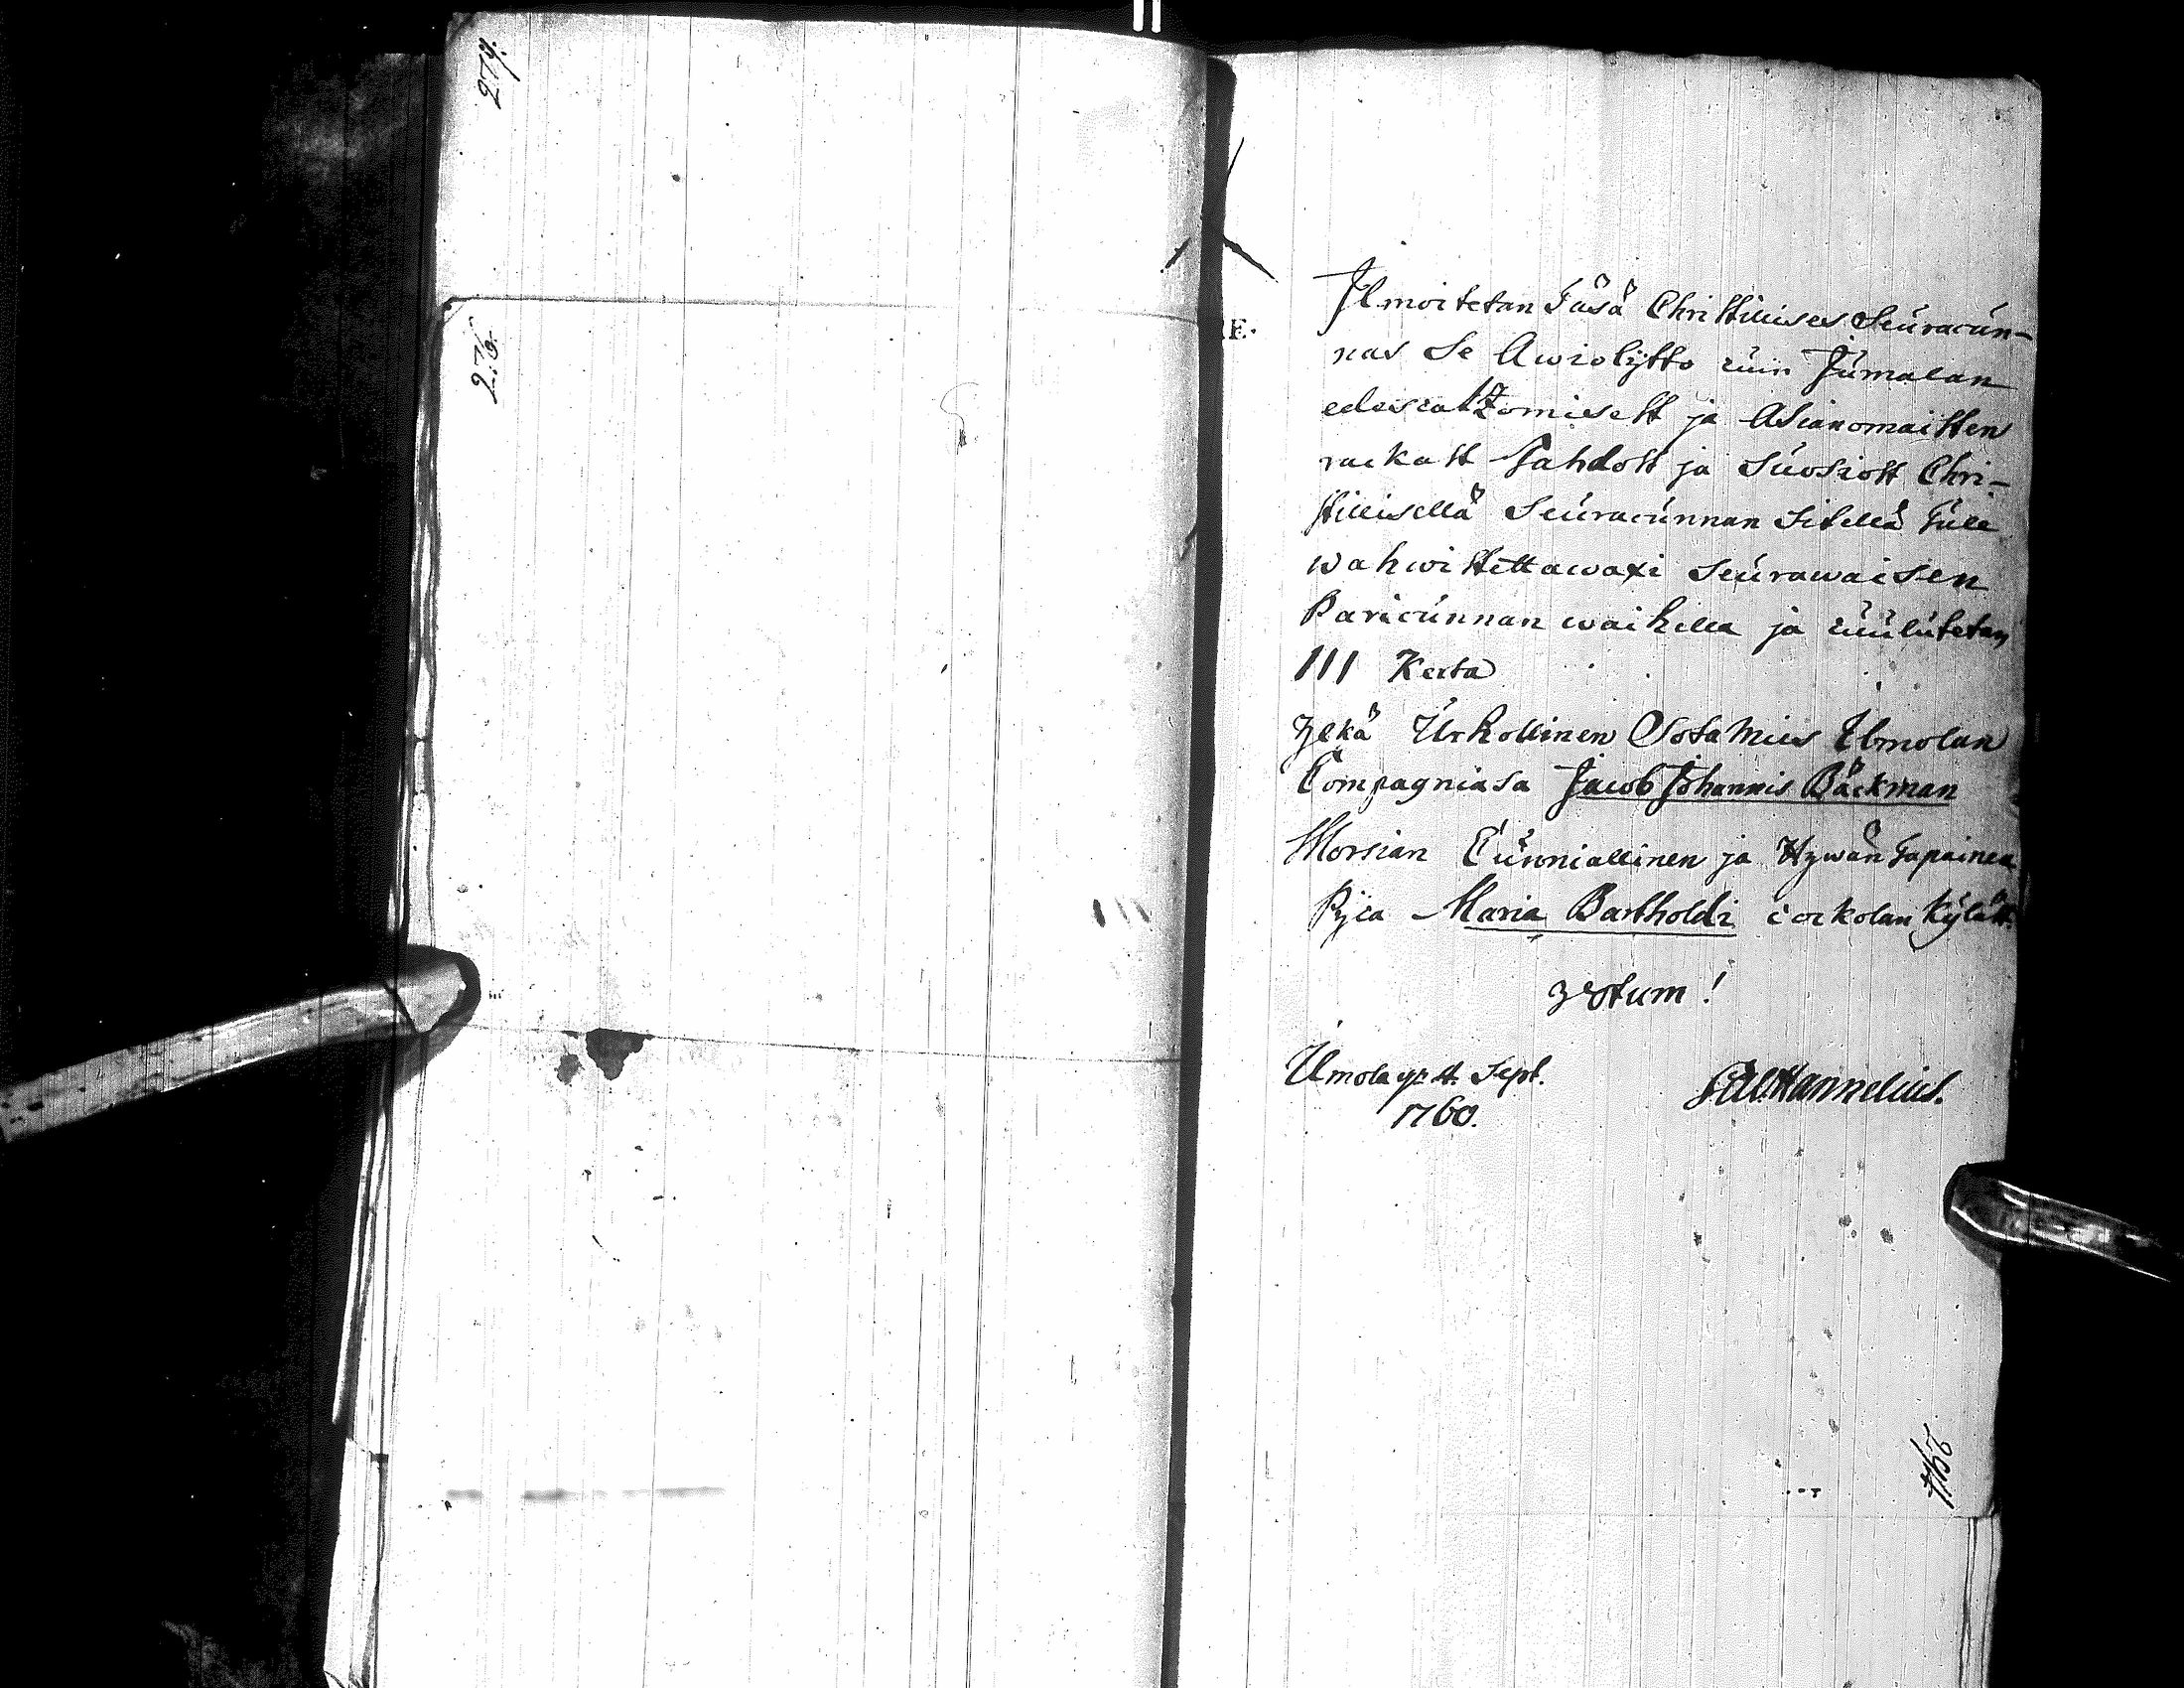 274.
276.
E.
Ilmoitetan Täsä Christillises Seuracún-
nas Se Awiolijtto cuin Jumalan
edescatzomisest ja Asianomaisten
rackast Tahdost ja Súosiost Chri-
stillisellä Seúracúnnan Sitellä Tulle
wahwistettawaxi Seúrawaisen
Paricúnnan waihella ja cuulútetan
III Kerta
Ylkä Urhollinen Sota Mies Ilmolan
Compagniasa Jacob Johannis Bäckman
Morsian Cúnniallinen ja Hywän Tapainen
Pijca Maria Bartholdi Jockolan Kyläst.
Ilmola 4. Sept.
1760.
Hannelius.